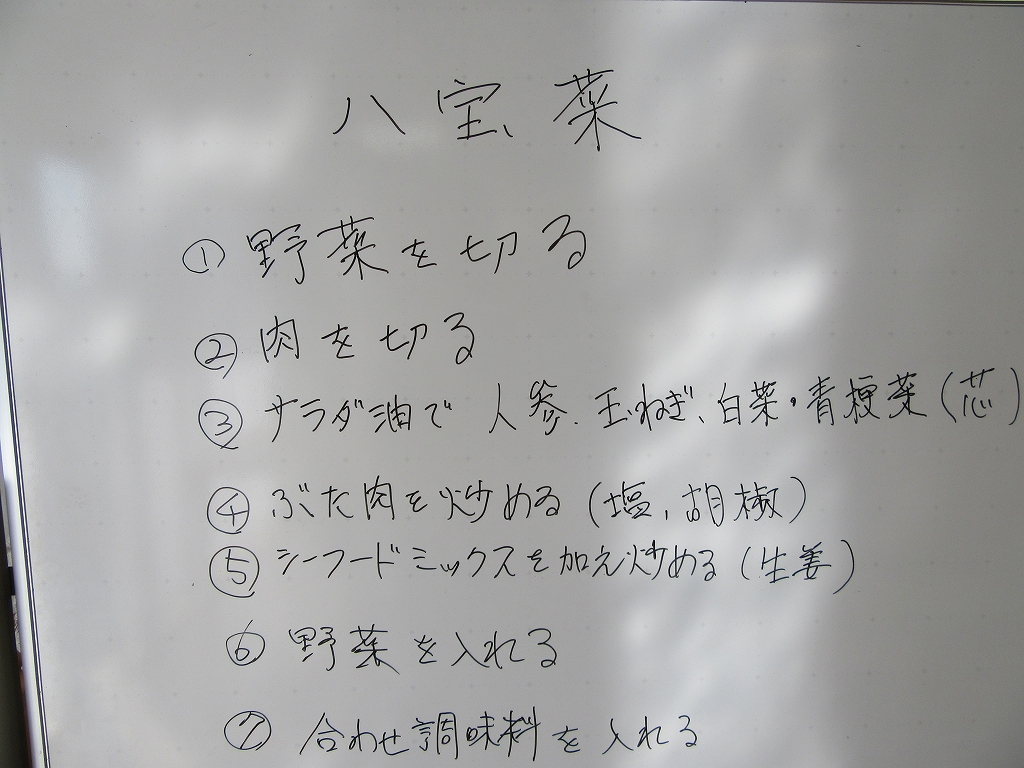 八宝菜
① 野菜を切る
② 肉を切る
③ サラダ油で 人参、玉ねぎ、白菜・青梗菜(芯)
④ ぶた肉を炒める(塩、胡椒)
⑤ シーフードミックスを加え炒める(生姜)
⑥ 野菜を入れる
⑦ 合わせ調味料を入れる